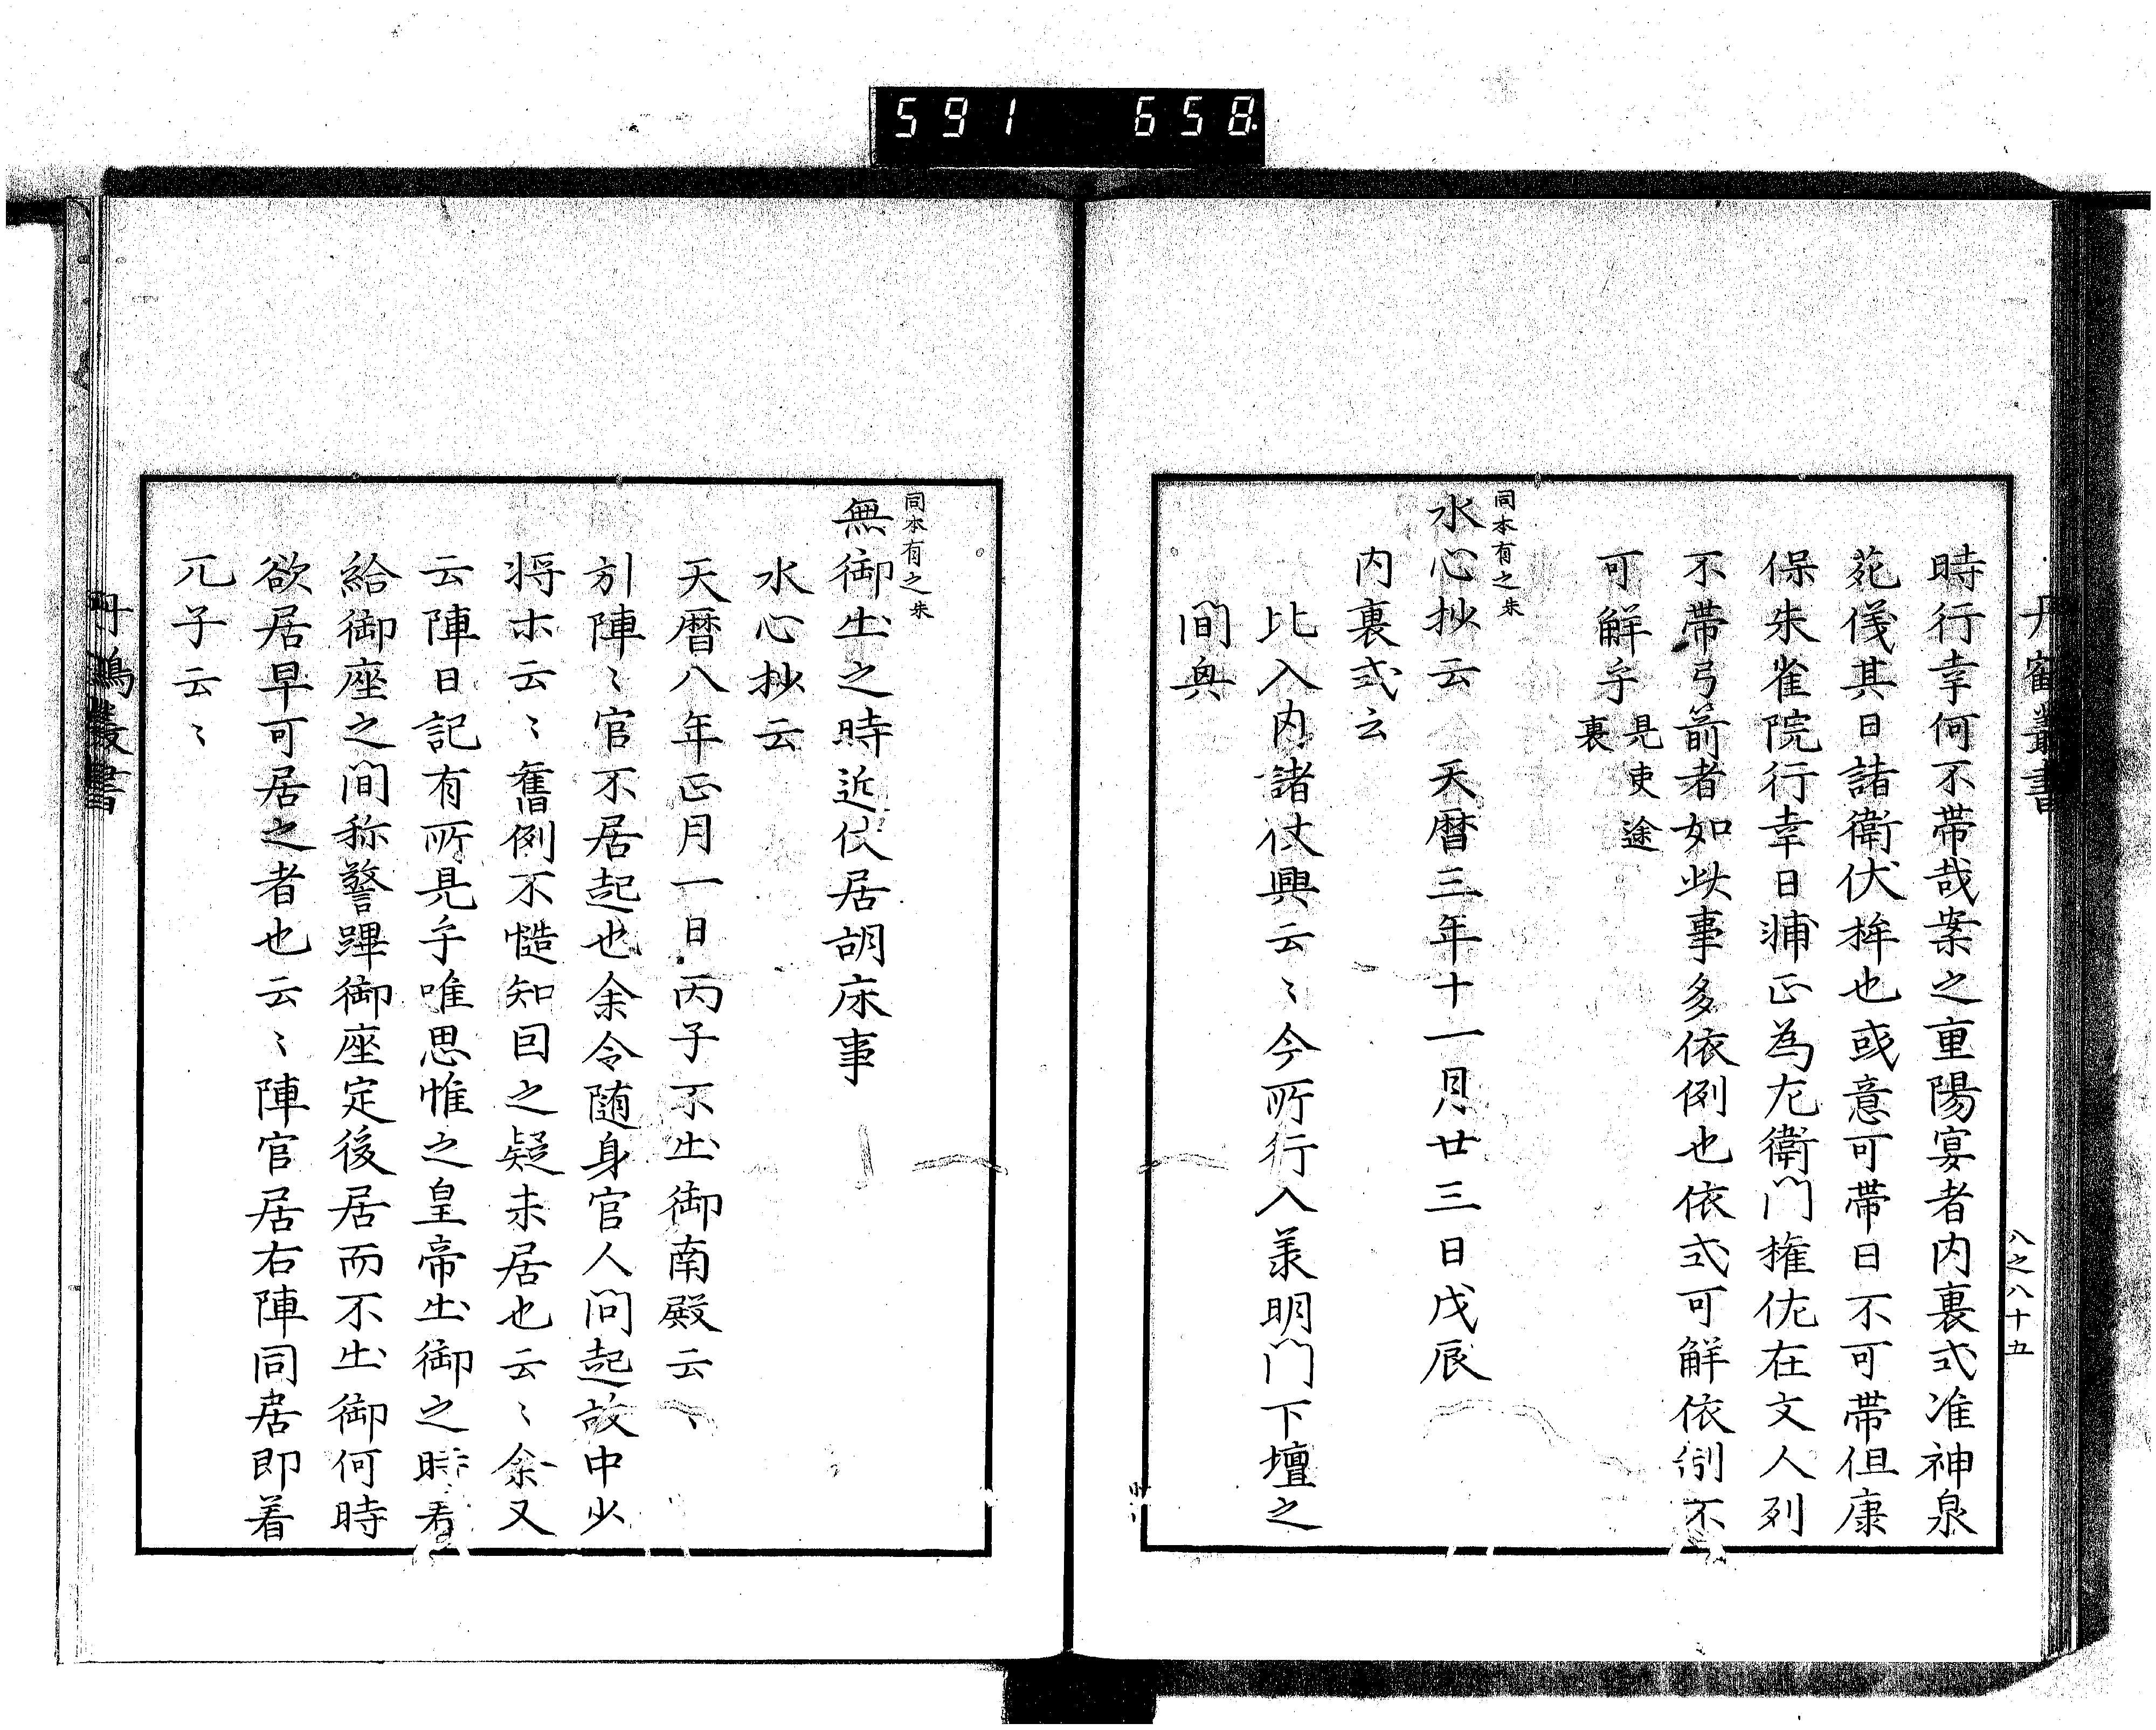 591 658
丹鶴叢書
八之八十五
時行幸何不帯哉案之重陽宴者内裏式准神泉
苑儀其日諸衛伏桙也或意可帶日不可帯但康
保朱雀院行幸日浦正為左衛門権佐在文人列
不帶弓箭者如此事多依例也依式可解依例不
可解乎見吏途
裏
同本有之朱
水心抄云 天暦三年十一月廿三日戊辰
内裏式云
比入内諸仗興云〻今所行入兼明門下壇之
間奥
同本有之朱
無御出之時近仗居胡床事
水心抄云
天暦八年正月一日丙子不出御南殿云〻
引陣〻官不居起也余令随身官人問起故中少
将ホ云〻舊例不慥知因之疑未居也云〻余又
云陣日記有所見乎唯思惟之皇帝出御之時着
給御座之間称警蹕御座定後居而不出御何時
欲居早可居之者也云〻陣官居右陣同居即着
兀子云〻
丹鶴叢書